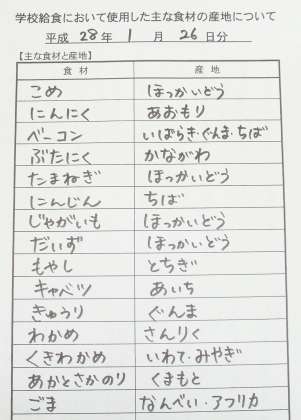 学校給食において使用した主な食材の産地について
平成 28 年 1 月 26 日分
【主な食材と産地】
食材 産地
こめ ほっかいどう
にんにく あおもり
ベーコン いばらき・ぐんま・ちば
ぶたにく かながわ
たまねぎ ほっかいどう
にんじん ちば
じゃがいも ほっかいどう
だいず ほっかいどう
もやし とちぎ
キャベツ あいち
きゅうり ぐんま
わかめ さんりく
くきわかめ いわて・みやぎ
あかとさかのり くまもと
ごま なんべい・アフリカ